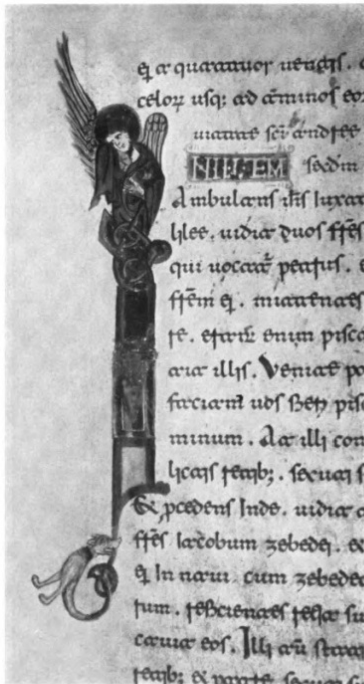 ei a quattuor uentis. a
celoꝝ usq; ad t̄minos eo
natale sc̄i andree
IN ILL TEM secdm
Ambulans ih̄s iuxta
lilee. uidit duos fr̄es
qui uocat̄ petrus. e
fr̄em ei. mittentes
te. erant̄ enim pisca
ait illis. Venite po
faciam uos fieri pis
minum. At illi con
lictis retib;. secuti s
Et p̄cedens Inde. uidit a
fr̄es Iacobum zebedei. e
ei In naui. cum zebede
tum. reficientes retia su
cauit eos. Illi aū stata
retib; & patre secuti s